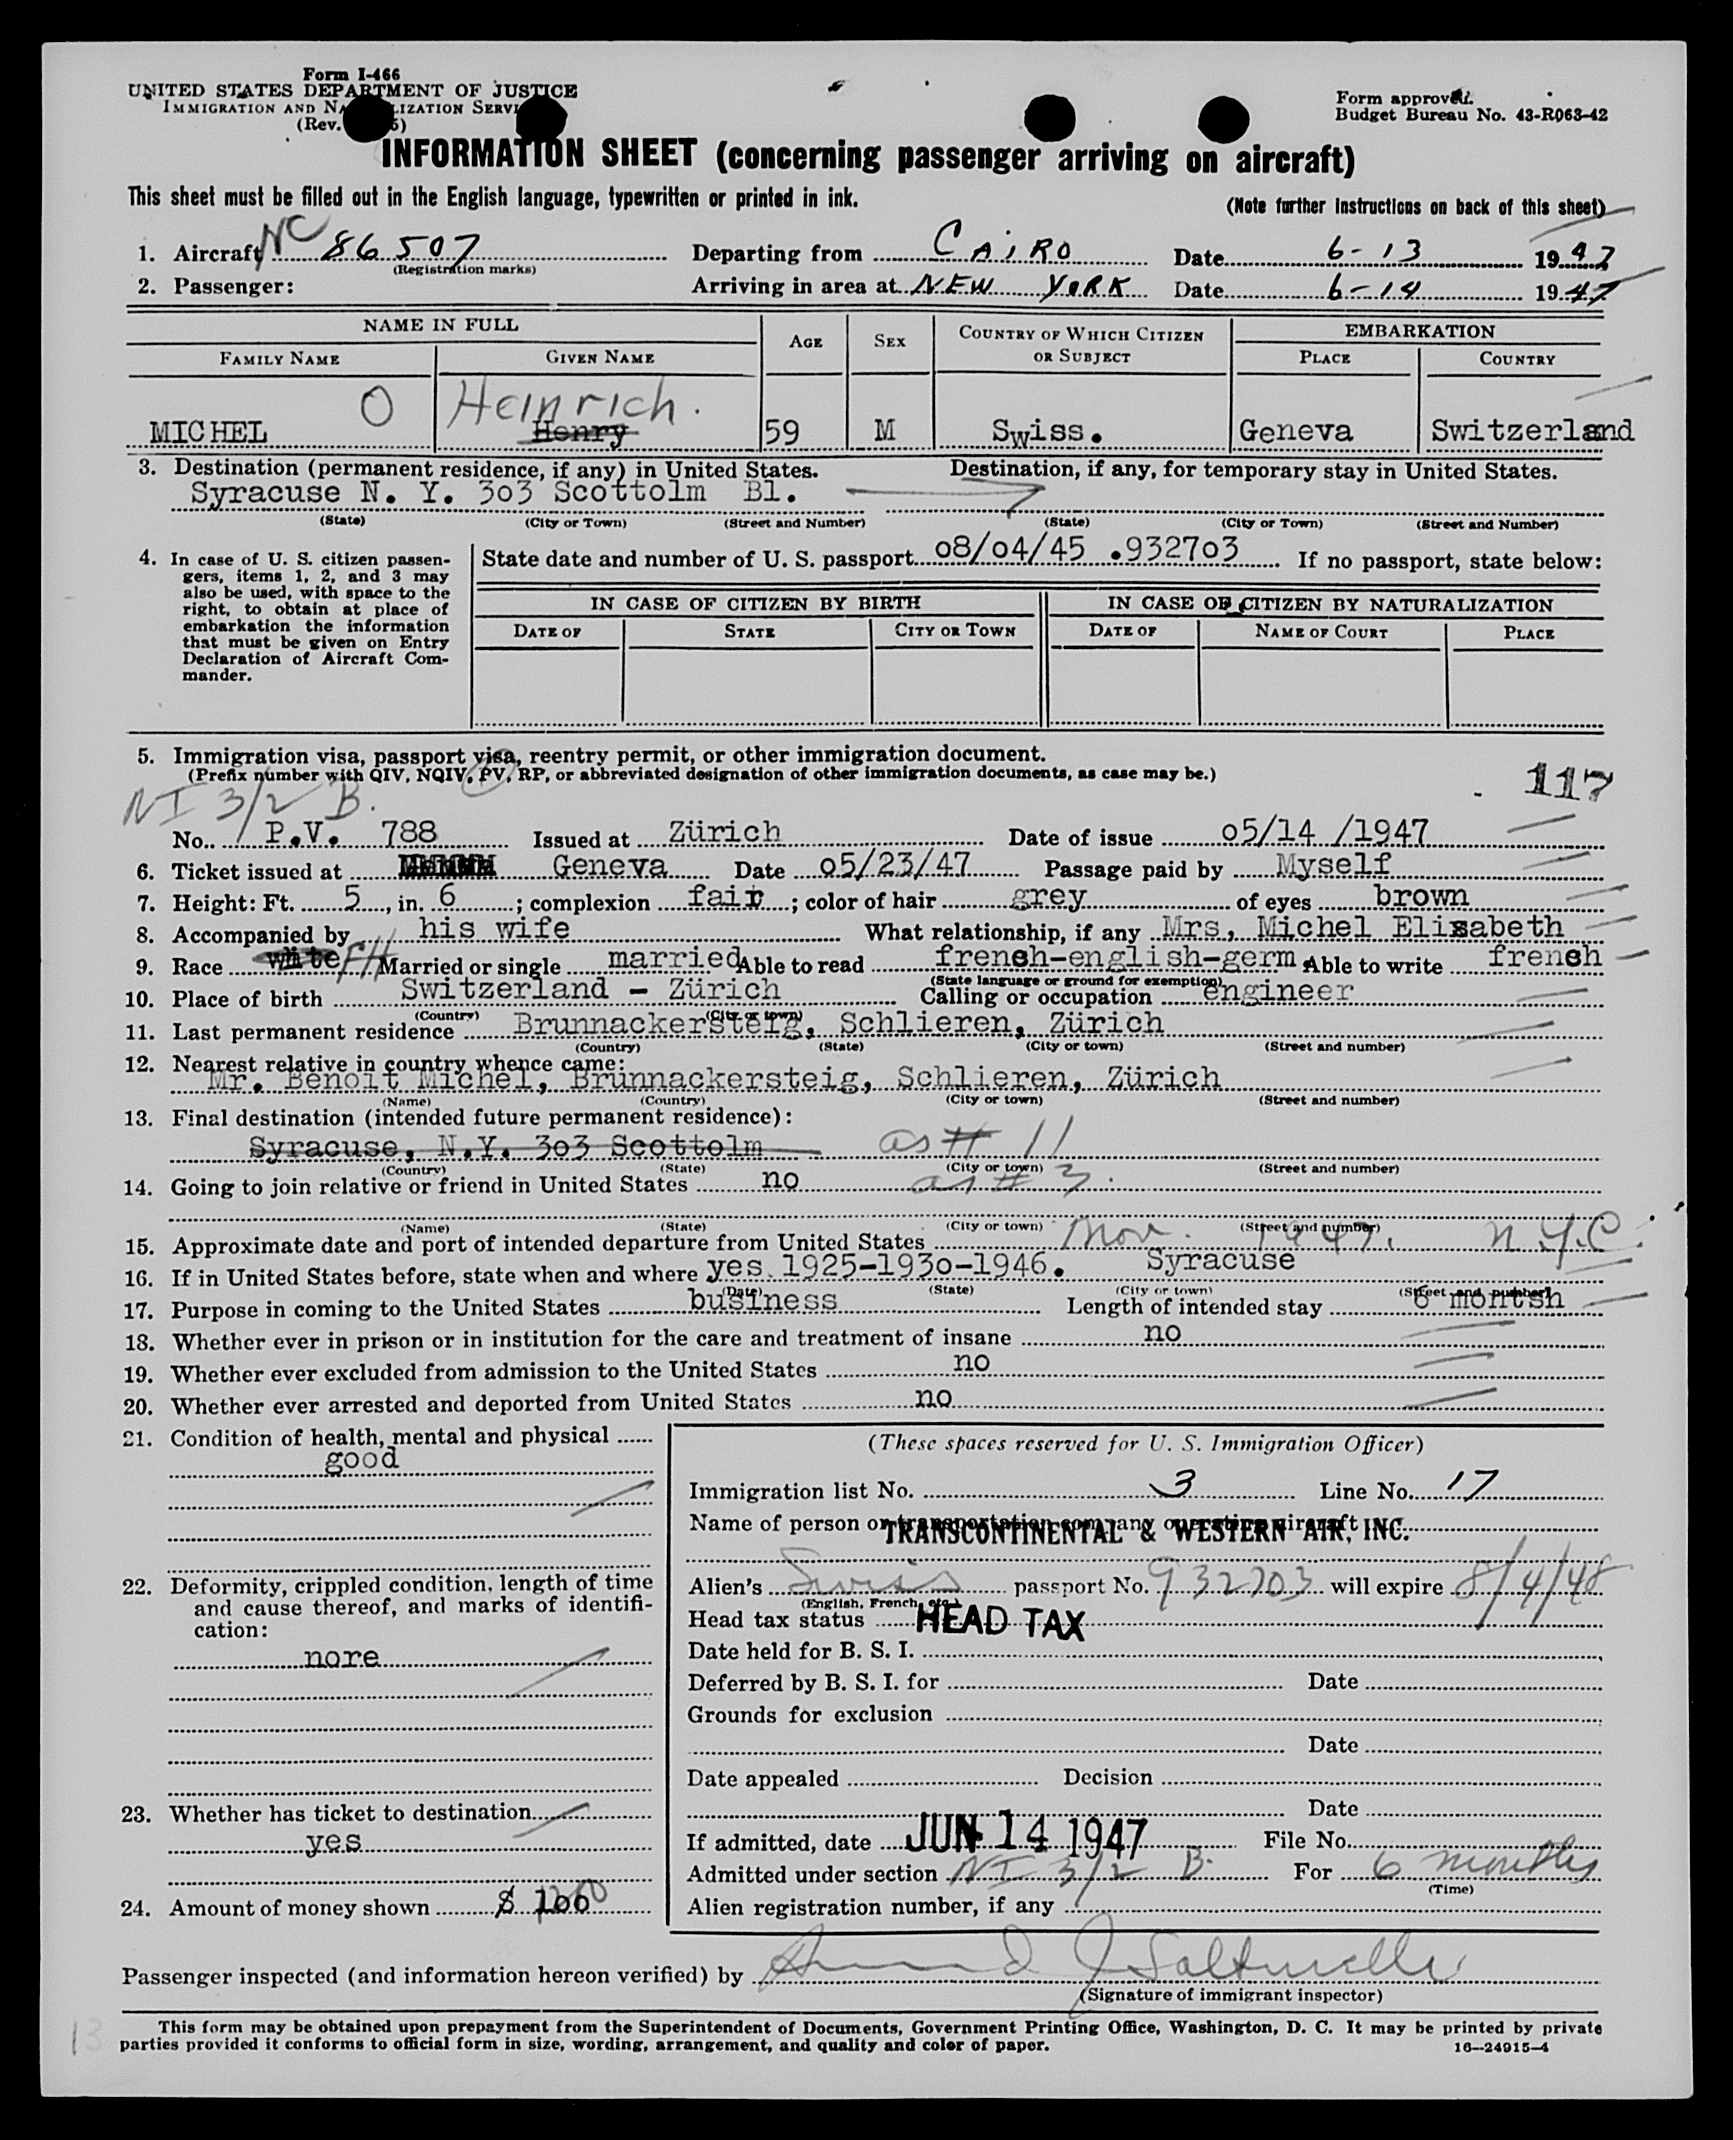 Form I-466
UNITED STATES DEPARTMENT OF JUSTICE
IMMIGRATION AND NA LIZATION SERVI
(Rev. 5)
Form approved.
Budget Bureau No. 43-R063-42
INFORMATION SHEET (concerning passenger arriving on aircraft)
This sheet must be filled out in the English language, typewritten or printed in ink.
(Note further instructions on back of this sheet)
1. Aircraft NC 86507 Departing from CAIRO Date 6-13 1947
(Registration marks)
2. Passenger: Arriving in area at NEW YORK Date 6-14 1947
NAME IN FULL AGE SEX COUNTRY OF WHICH CITIZEN OR SUBJECT EMBARKATION
FAMILY NAME GIVEN NAME PLACE COUNTRY
O Heinrich.
MICHEL Henry 59 M Swiss. Geneva Switzerland
3. Destination (permanent residence, if any) in United States. Destination, if any, for temporary stay in United States.
Syracuse N. Y. 303 Scottolm Bl.
(State) (City or Town) (Street and Number) (State) (City or Town) (Street and Number)
4. In case of U. S. citizen passen-
gers, items 1, 2, and 3 may
also be used, with space to the
right, to obtain at place of
embarkation the information
that must be given on Entry
Declaration of Aircraft Com-
mander.
State date and number of U. S. passport 08/04/45 .932703 If no passport, state below:
IN CASE OF CITIZEN BY BIRTH IN CASE OF CITIZEN BY NATURALIZATION
DATE OF STATE CITY OR TOWN DATE OF NAME OF COURT PLACE
5. Immigration visa, passport visa, reentry permit, or other immigration document.
(Prefix number with QIV, NQIV, PV, RP, or abbreviated designation of other immigration documents, as case may be.)
117
NI 3/2 B.
No. P.V. 788 Issued at Zürich Date of issue 05/14 /1947
6. Ticket issued at Geneva Date 05/23/47 Passage paid by Myself
7. Height: Ft. 5, in. 6; complexion fair; color of hair grey of eyes brown
8. Accompanied by his wife What relationship, if any Mrs, Michel Elisabeth
9. Race white Married or single married Able to read french-english-germ Able to write french
(State language or ground for exemption)
10. Place of birth Switzerland - Zürich Calling or occupation engineer
(Country) (City or town)
11. Last permanent residence Brunnackersteig, Schlieren, Zürich
(Country) (State) (City or town) (Street and number)
12. Nearest relative in country whence came:
Mr. Benoit Michel, Brunnackersteig, Schlieren, Zürich
(Name) (Country) (City or town) (Street and number)
13. Final destination (intended future permanent residence):
Syracuse, N.Y. 303 Scottolm as # 11
(Country) (State) (City or town) (Street and number)
14. Going to join relative or friend in United States no as # 3.
(Name) (State) (City or town) (Street and number)
15. Approximate date and port of intended departure from United States Nov. 1947. N.Y.C.
16. If in United States before, state when and where yes 1925-1930-1946. Syracuse
(Date) (State) (City or town) (Street and number)
17. Purpose in coming to the United States business Length of intended stay 6 montsh
18. Whether ever in prison or in institution for the care and treatment of insane no
19. Whether ever excluded from admission to the United States no
20. Whether ever arrested and deported from United States no
21. Condition of health, mental and physical
good
22. Deformity, crippled condition, length of time
and cause thereof, and marks of identifi-
cation:
nore
23. Whether has ticket to destination
yes
24. Amount of money shown $ 100
(These spaces reserved for U. S. Immigration Officer)
Immigration list No. 3 Line No. 17
Name of person or transportation company operating aircraft
TRANSCONTINENTAL & WESTERN AIR, INC.
Alien's Swiss passport No. 932703 will expire 8/4/48
(English, French, etc.)
Head tax status HEAD TAX
Date held for B. S. I.
Deferred by B. S. I. for Date
Grounds for exclusion
Date
Date appealed Decision
Date
If admitted, date JUN 14 1947 File No.
Admitted under section NI 3/2 B. For 6 months
(Time)
Alien registration number, if any
Passenger inspected (and information hereon verified) by
(Signature of immigrant inspector)
This form may be obtained upon prepayment from the Superintendent of Documents, Government Printing Office, Washington, D. C. It may be printed by private
parties provided it conforms to official form in size, wording, arrangement, and quality and color of paper.
16—24915-4
13